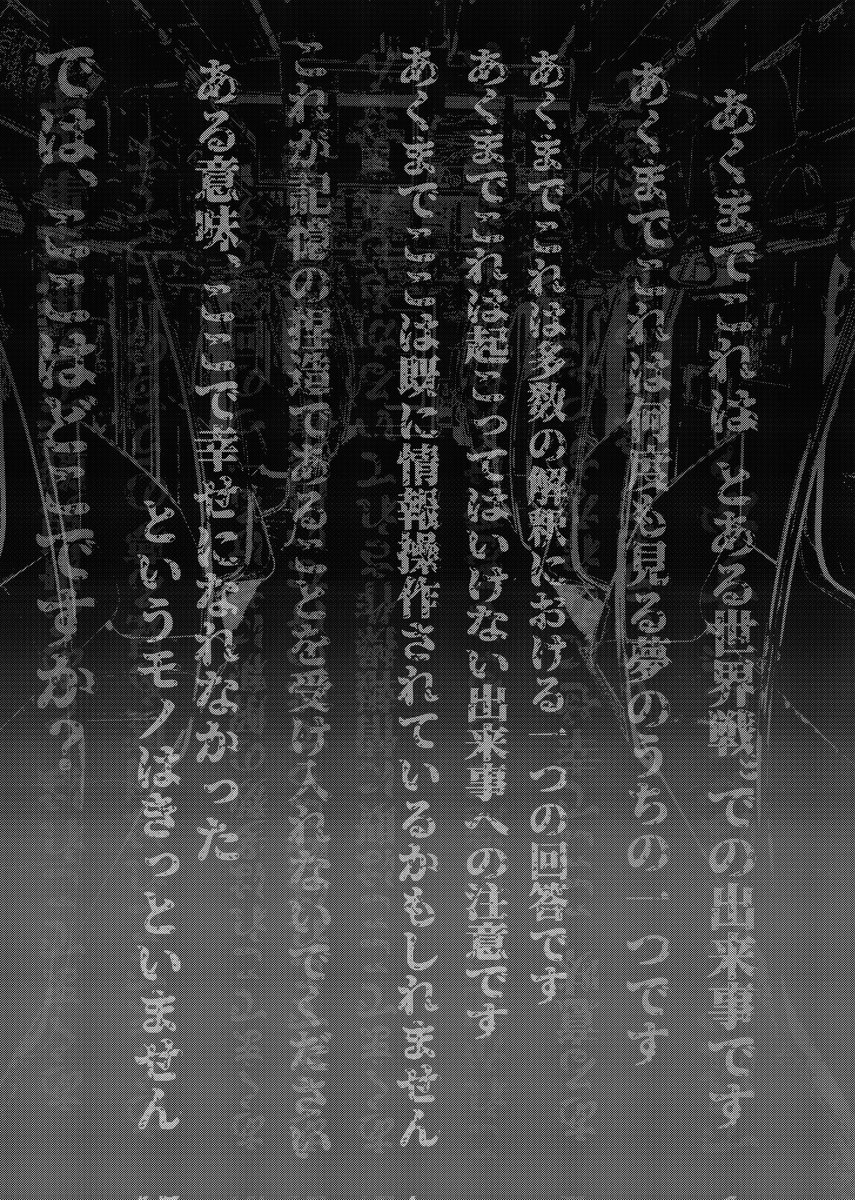 あくまでこれは とある世界戦での出来事です
あくまでこれは何度も見る夢のうちの一つです
あくまでこれは多数の解釈における一つの回答です
あくまでこれは起こってはいけない出来事への注意です
あくまでここは既に情報操作されているかもしれません
これが記憶の捏造であることを受け入れないでください
ある意味、ここで幸せになれなかった
というモノはきっといません
では、ここはどこですか?